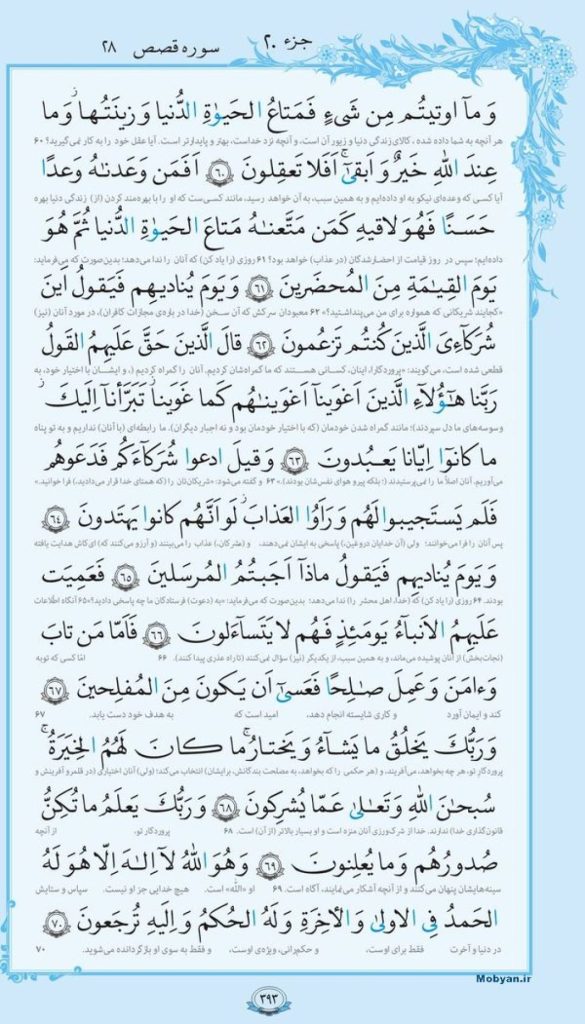 جزء ۲۰
سوره قصص ۲۸
وَ مآ اوتیتُم مِن شَیءٍ فَمَتاعُ الحَیوٰةِ الدُّنیا وَ زینَتُها ۚ وَ ما
هر آنچه به شما داده شده، کالای زندگی دنیا و زیور آن است، و آنچه نزد خداست، بهتر و پایدارتر است. آیا عقل خود را به کار نمی‌گیرید؟ ۶۰
عِندَ اللهِ خَیرٌ وَ اَبقیٰٓ ۚ اَفَلا تَعقِلونَ ۶۰ اَفَمَن وَعَدنٰهُ وَعدًا
آیا کسی که وعده‌ای نیکو به او داده‌ایم و به همین سبب، به آن خواهد رسید، مانند کسی‌ست که او را با بهره‌مند کردن (از) زندگی دنیا بهره
حَسَنًا فَهُوَ لاقیهِ کَمَن مَتَّعنٰهُ مَتاعَ الحَیوٰةِ الدُّنیا ثُمَّ هُوَ
داده‌ایم؛ سپس در روز قیامت از احضارشدگان (در عذاب) خواهد بود؟ ۶۱ روزی (را یاد کن) که آنان را ندا می‌دهد؛ بدین‌صورت که می‌فرماید:
یَومَ القِیٰمَةِ مِنَ المُحضَرینَ ۶۱ وَ یَومَ یُنادیهِم فَیَقولُ اَینَ
«کجایند شریکانی که همواره برای من می‌پنداشتید؟» ۶۲ معبودان سرکش که آن سخن (خدا در باره‌ی مجازات کافران)، در مورد آنان (نیز)
شُرَکآءِیَ الَّذینَ کُنتُم تَزعُمونَ ۶۲ قالَ الَّذینَ حَقَّ عَلَیهِمُ القَولُ
قطعی شده است، می‌گویند: «پروردگارا، اینان، کسانی هستند که ما گمراهشان کردیم. آنان را گمراه کردیم (، و ایشان با اختیار خود، به
رَبَّنا هٰٓؤُلآءِ الَّذینَ اَغوَینآ اَغوَینٰهُم کَما غَوَینا ۖ تَبَرَّأنآ اِلَیکَ ۖ
وسوسه‌های ما دل سپردند)؛ مانند گمراه شدن خودمان (که با اختیار خودمان بود و نه اجبار دیگران). ما رابطه‌ای (با آنان) نداریم و به تو پناه
ما کانوٓا اِیّانا یَعبُدونَ ۶۳ وَ قیلَ ادعوا شُرَکآءَکُم فَدَعَوهُم
می‌آوریم. آنان اصلاً ما را نمی‌پرستیدند (؛ بلکه پیرو هوای نفس‌شان بودند).» ۶۳ و گفته می‌شود: «شریکان‌تان را (که همتای خدا قرار می‌دادید،) فرا خوانید.»
فَلَم یَستَجیبوا لَهُم وَ رَاَوُا العَذابَ ۚ لَو اَنَّهُم کانوا یَهتَدونَ ۶۴
پس آنان را فرا می‌خوانند؛ ولی (آن خدایان دروغین)، پاسخی به ایشان نمی‌دهند، و (مشرکان،) عذاب را می‌بینند (و آرزو می‌کنند که) ای‌کاش هدایت یافته
وَ یَومَ یُنادیهِم فَیَقولُ ماذآ اَجَبتُمُ المُرسَلینَ ۶۵ فَعَمِیَت
بودند. ۶۴ روزی (را یاد کن) که (خدا، اهل محشر را) ندا می‌دهد؛ بدین‌صورت که می‌فرماید: «به (دعوت) فرستادگان ما چه پاسخی دادید؟» ۶۵ آنگاه اطلاعات
عَلَیهِمُ الاَنبآءُ یَومَئِذٍ فَهُم لا یَتَسآءَلونَ ۶۶ فَاَمّا مَن تابَ
(نجات‌بخش) از آنان پوشیده می‌ماند، و به همین سبب، از یکدیگر (نیز) سؤال نمی‌کنند (تا راه عذری پیدا کنند). ۶۶ امّا کسی که توبه
وَ ءامَنَ وَ عَمِلَ صٰلِحًا فَعَسیٰٓ اَن یَکونَ مِنَ المُفلِحینَ ۶۷
کند و ایمان آورد و کاری شایسته انجام دهد، امید است که به هدف خود دست یابد. ۶۷
وَ رَبُّکَ یَخلُقُ ما یَشآءُ وَ یَختارُ ۗ ما کانَ لَهُمُ الخِیَرَةُ ۚ
پروردگار تو، هر چه بخواهد، می‌آفریند، و (هر حکمی را که بخواهد، به مصلحت بندگانش، برایشان) انتخاب می‌کند؛ (ولی) آنان اختیاری (در قلمرو آفرینش و
سُبحٰنَ اللهِ وَ تَعالیٰ عَمّا یُشرِکونَ ۶۸ وَ رَبُّکَ یَعلَمُ ما تُکِنُّ
قانون‌گذاری خدا) ندارند. خدا از شرک‌ورزی آنان منزه است و او بسیار بالاتر (از آن) است. ۶۸ پروردگار تو، از آنچه
صُدورُهُم وَ ما یُعلِنونَ ۶۹ وَ هُوَ اللهُ لآ اِلٰهَ اِلّا هُوَ لَهُ
سینه‌هایشان پنهان می‌کنند و از آنچه آشکار می‌نمایند، آگاه است. ۶۹ او «الله» است. هیچ خدایی جز او نیست. سپاس و ستایش
الحَمدُ فِی الاولیٰ وَ الأخِرَةِ وَ لَهُ الحُکمُ وَ اِلَیهِ تُرجَعونَ ۷۰
در دنیا و آخرت فقط برای اوست، و حکم‌رانی، ویژه‌ی اوست، و فقط به سوی او بازگردانده می‌شوید. ۷۰
Mobyan.ir
۳۹۳